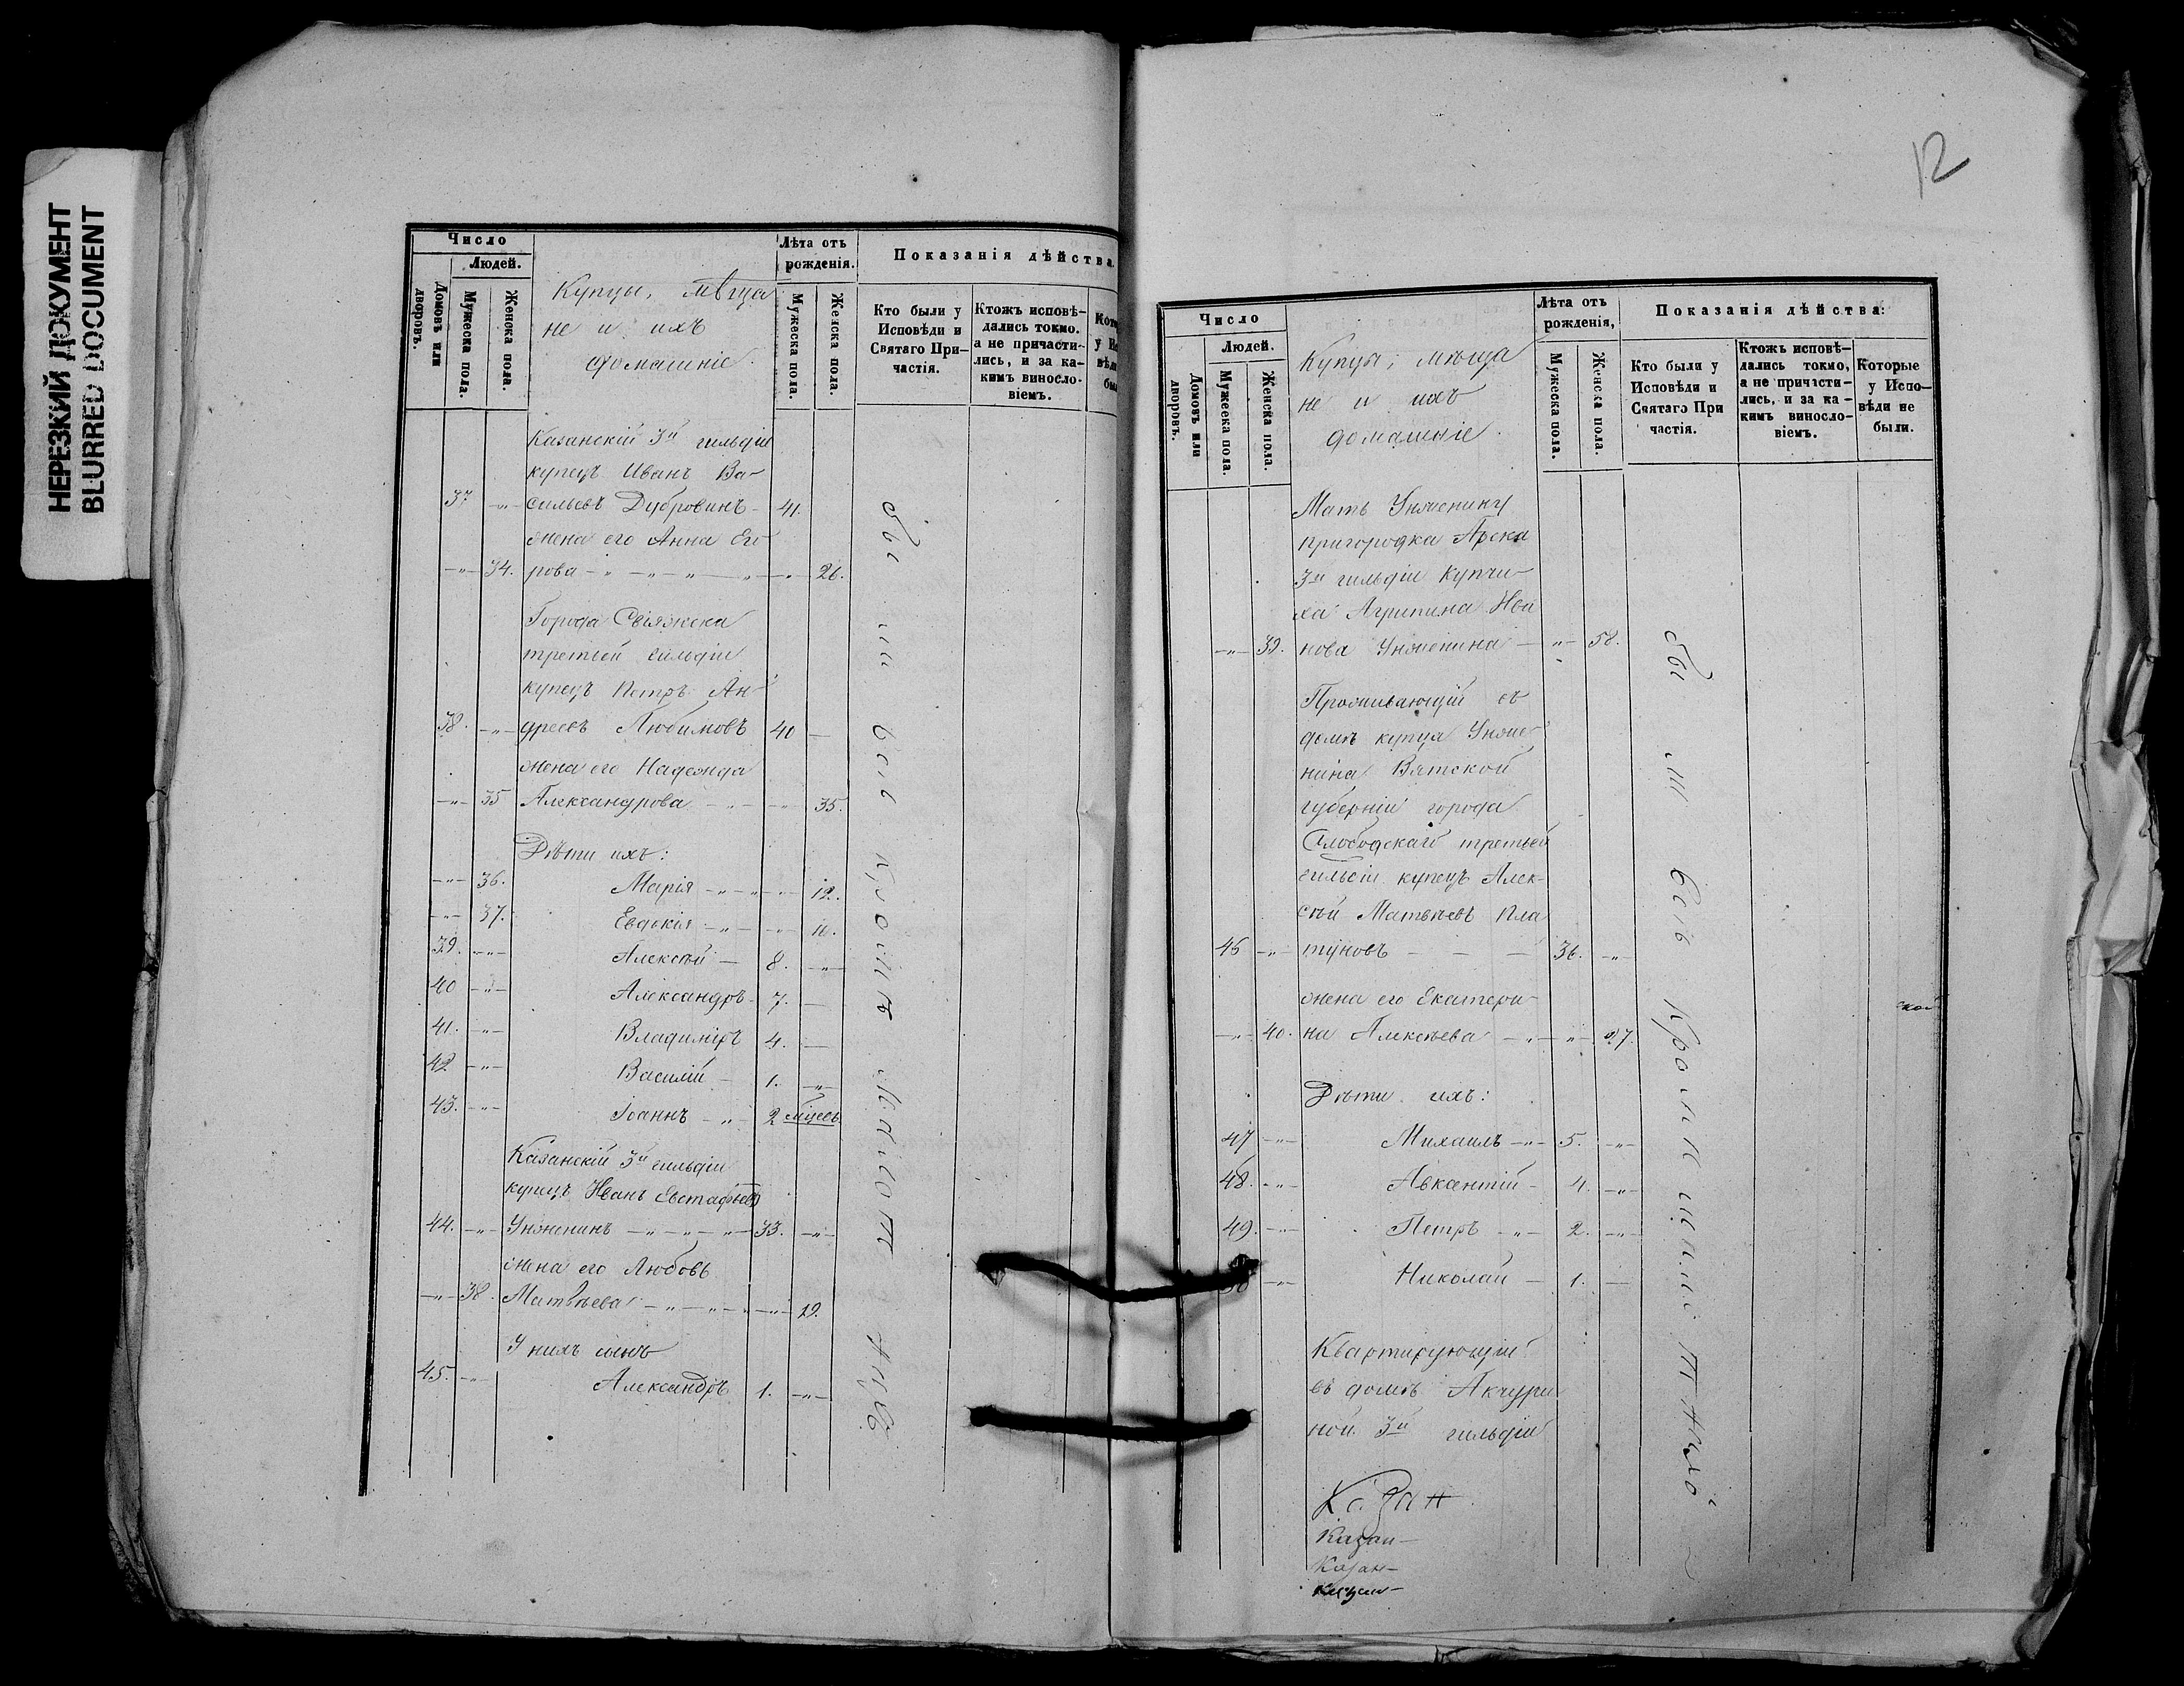 НЕРЕЗКИЙ ДОКУМЕНТ
BLURRED DOCUMENT
Число
Людей.
Домовъ или дворовъ.
Мужеска пола.
Женска пола.
Купцы, мѣща
не и ихъ
домашніе
Лѣта отъ рожденія.
Мужеска пола.
Женска пола.
Показанія дѣйства.
Кто были у Исповѣди и Святаго При-частія.
Ктожъ исповѣ-дались токмо. а не причасти-лись, и за ка-кимъ виносло-віемъ.
Казанскій 3й гильдіи
купецъ Иванъ Ва-
37 -"- сильевъ Дубровинъ - 41.
жена его Анна Его
-"- 34. рова -"-"-"-"-"- 26.
Города Свіяжска
третьей гильдіи
купецъ Петръ Ан-
38. -"- дреевъ Любимовъ 40 -
жена его Надежда
-"- 35 Александрова -"- -"- 35.
Дѣти ихъ:
-"- 36. Марія -"-"-"- 12.
-"- 37. Евдокія -"- -"- 10.
39. -"- Алексѣй - 8. -"-
40 -"- Александръ - 7. -
41. -"- Владиміръ 4. -
42 -"- Василій - 1. -"-
43. -"- Іоаннъ -"- 2 мѣсвъ
Казанскій 3й гильдіи
купецъ Иванъ Евстафьевъ
44. -"- Унженинъ -"-"-"-"- 33. -"-
жена его Любовь
-"- 38. Матвѣева -"-"-"-"- 19.
У нихъ сынъ
45. -"- Александръ 1. -"-
бы ли всѣ кромѣ малолѣт
12
Число
Людей.
Домовъ или дворовъ.
Мужеска пола.
Женска пола.
Купцы, мѣща
не и ихъ
домашніе.
Лѣта отъ рожденія,
Мужеска пола.
Женска пола.
Показанія дѣйства:
Кто были у Исповѣди и Святаго При частія.
Ктожъ исповѣ-дались токмо, а не причасти-лись, и за ка-кимъ виносло-віемъ.
Которые у Испо-вѣди не были.
Мать Унженину
пригородка Арска
3й гильдіи купчи-
ха Агрипина Ива
-"- 39. нова Унженина - -"- 58.
Проживающій въ
домѣ купца Унже
нина Вятской
губерніи города
Слободскаго третьей
гильдіи купецъ Алек-
сѣй Матвѣевъ Пла
46 -"- туновъ - - - 36. -"-
жена его Екатери-
-"- 40. на Алексѣева -"-"- 27.
Дѣти ихъ:
47 -"- Михаилъ -"- 5. -"-
48. -"- Авксентій - 4. -"-
49. -"- Петръ -"- 2. -"-
50 -"- Николай - 1. -
Квартирующій
въ домѣ Акчури
ной 3й гильдіи
Казан
Казан-
Казан-
Казан-
бы ли всѣ кромѣ